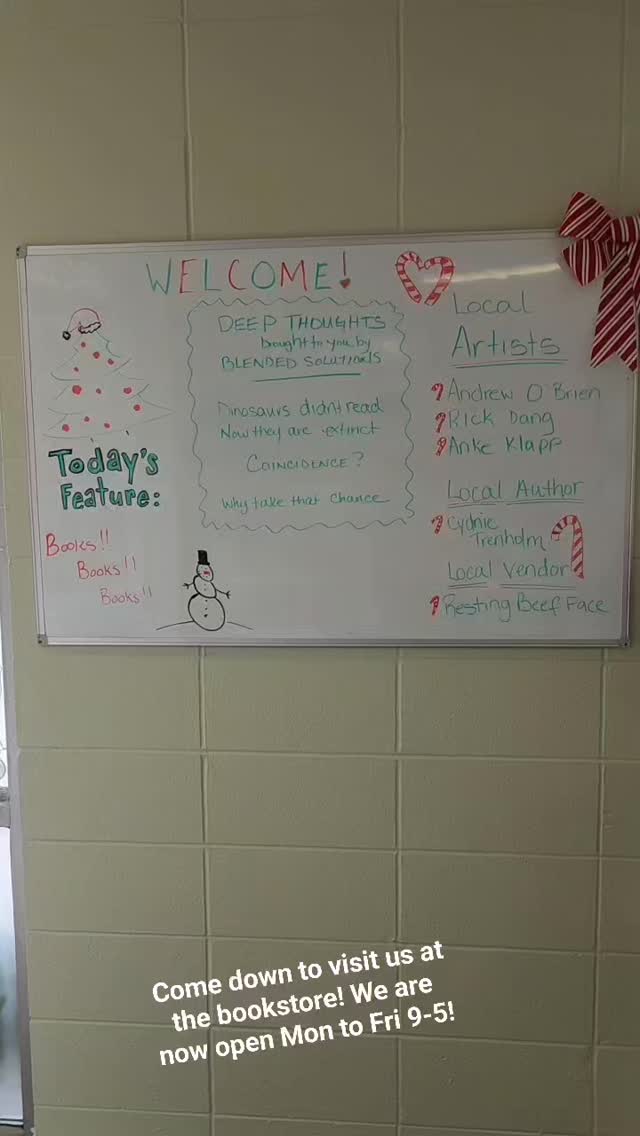 WELCOME!
DEEP THOUGHTS
brought to you by
BLENDED SOLUTIONS
Dinosaurs didn't read
Now they are extinct
COINCIDENCE?
Why take that chance
Today's
Feature:
Books!!
Books!!
Books!!
Local
Artists
Andrew O'Brien
Rick Dang
Anke Klapp
Local Author
Cydnie
Trenholm
Local Vendor
Resting Beef Face
Come down to visit us at
the bookstore! We are
now open Mon to Fri 9-5!